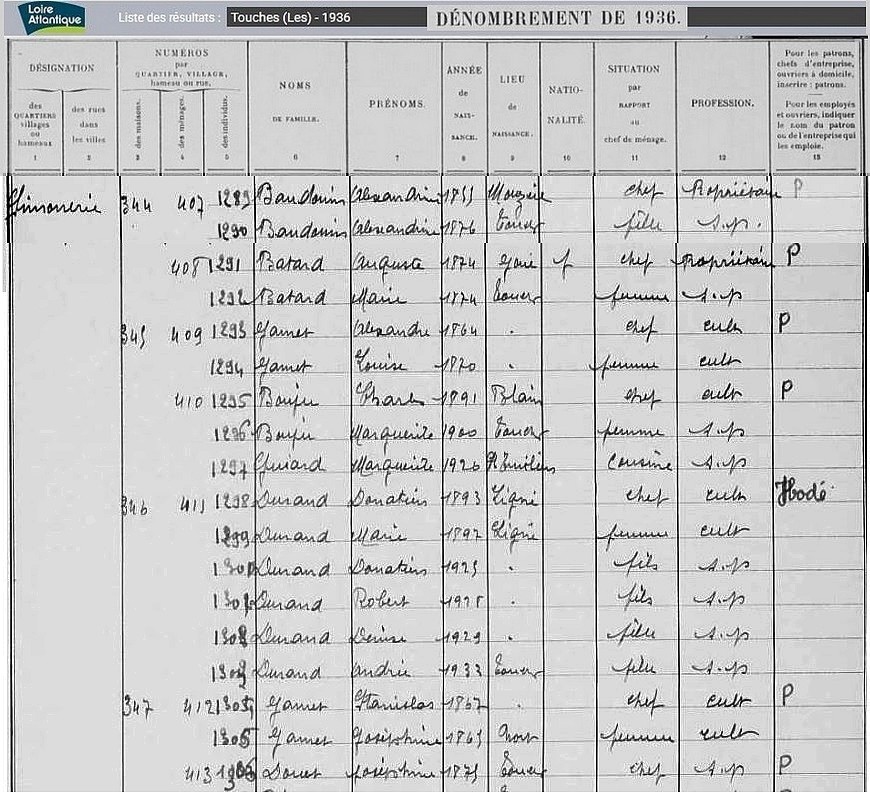 Loire Atlantique
Liste des résultats : Touches (Les) - 1936
DÉNOMBREMENT DE 1936.
DÉSIGNATION
des QUARTIERS villages ou hameaux
1
des rues dans les villes
2
NUMÉROS par QUARTIER, VILLAGE, hameau ou rue.
des maisons.
3
des ménages.
4
des individus.
5
NOMS DE FAMILLE.
6
PRÉNOMS.
7
ANNÉE de NAIS-SANCE.
8
LIEU de NAISSANCE.
9
NATIO-NALITÉ.
10
SITUATION par RAPPORT au chef de ménage.
11
PROFESSION.
12
Pour les patrons, chefs d'entreprise, ouvriers à domicile, inscrire : patrons.
Pour les employés et ouvriers, indiquer le nom du patron ou de l'entreprise qui les emploie.
13
344 407 1289 Baudouin Alexandrine 1855 Mouzeil chef Propriétaire P
1290 Baudouin Alexandrine 1876 Touches fille s.p.
408 1291 Batard Auguste 1874 f chef Propriétaire P
1292 Batard Marie 1874 Touches femme s.p
345 409 1293 Gamet Alexandre 1864 . chef cult P
1294 Gamet Louise 1870 . femme cult
410 1295 Bouju Charles 1891 Blain chef cult P
1296 Bouju Marguerite 1900 Touches femme s.p
1297 Guiard Marguerite 1920 St Emilien cousine s.p
346 411 1298 Durand Donatien 1893 Ligné chef cult Hodé
1299 Durand Marie 1897 Ligné femme cult
1300 Durand Donatien 1925 . fils s.p
Durand Robert 1928 . fils s.p
Durand Denise 1929 . fille s.p
Durand Andrée 1933 Touches fille s.p
347 412 Gamet Stanislas 1867 . chef cult P
Gamet Joséphine 1865 Nort femme cult
413 Douet Joséphine 1875 Touches chef s.p P